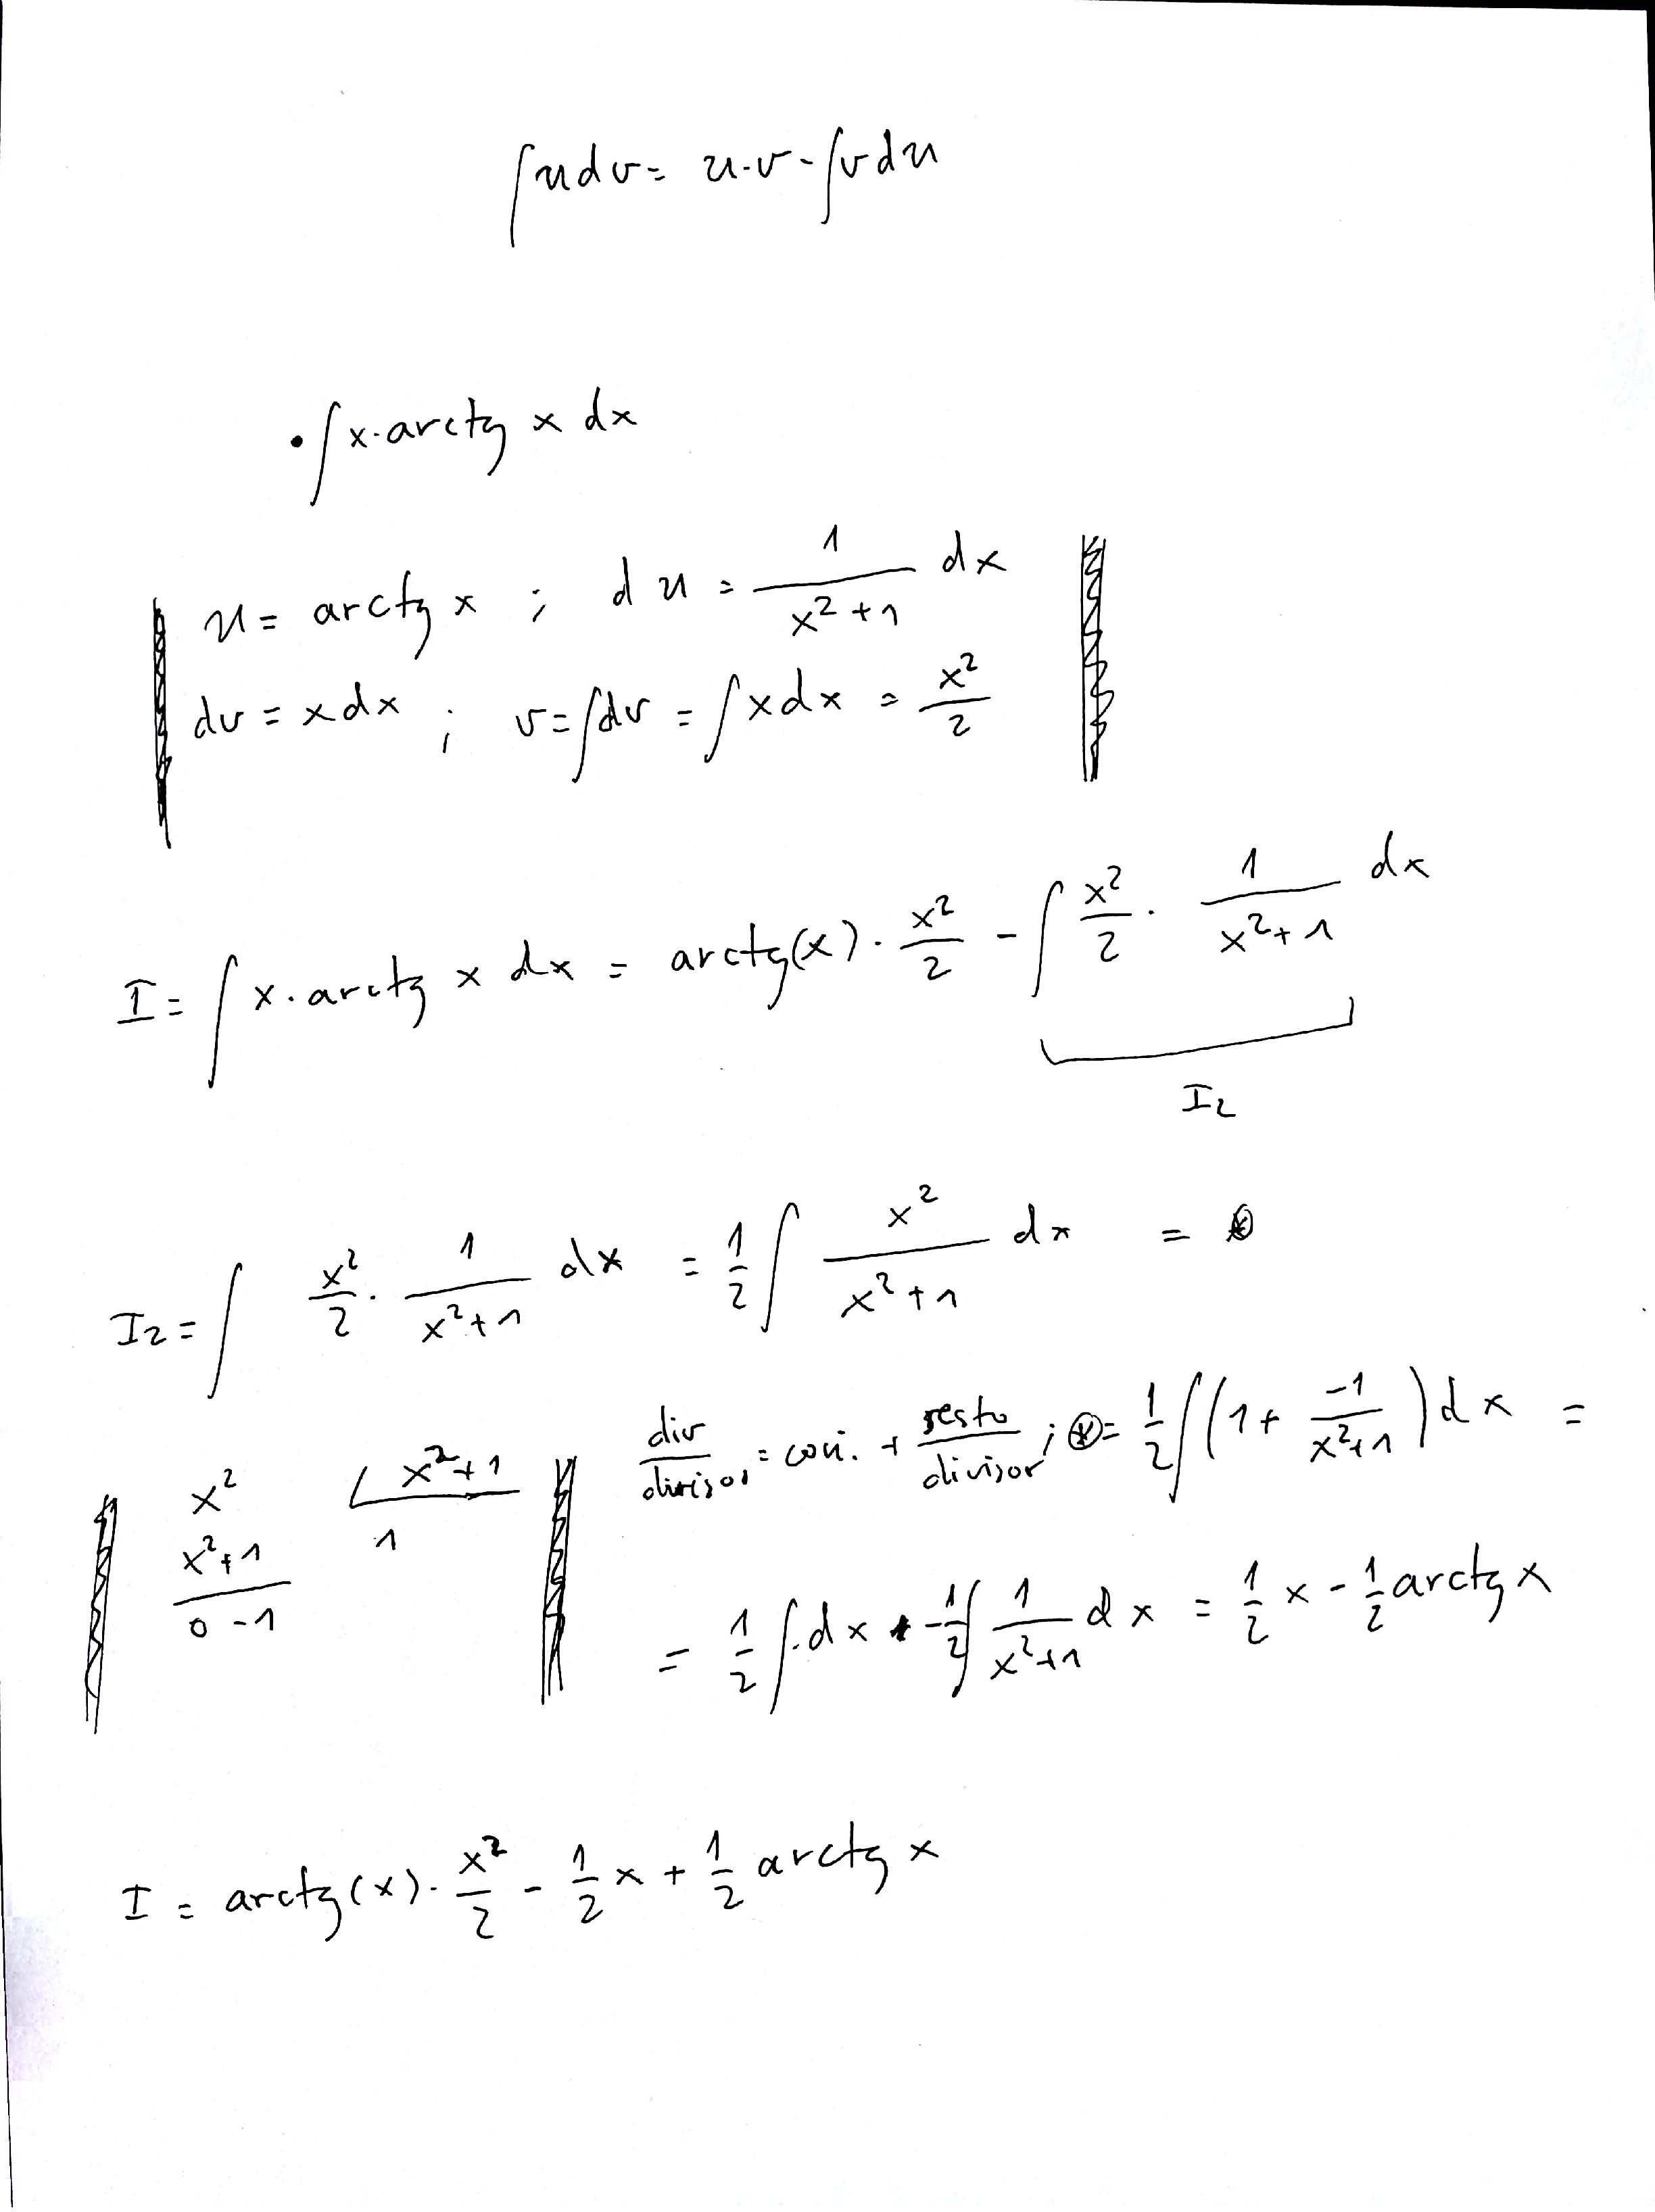 ∫udv = u·v - ∫vdu
• ∫x·arctg x dx
u = arctg x ; du = 1/(x²+1) dx
dv = xdx ; v = ∫dv = ∫xdx = x²/2
I = ∫x·arctg x dx = arctg(x)·x²/2 - ∫x²/2 · 1/(x²+1) dx
I₂
I₂ = ∫ x²/2 · 1/(x²+1) dx = 1/2 ∫ x²/(x²+1) dx = ⊛
div/divisor = coci. + resto/divisor ; ⊛ = 1/2 ∫(1 + -1/(x²+1)) dx =
x² x²+1
x²+1 1
0 -1
= 1/2 ∫·dx - 1/2 ∫ 1/(x²+1) dx = 1/2 x - 1/2 arctg x
I = arctg(x)·x²/2 - 1/2 x + 1/2 arctg x